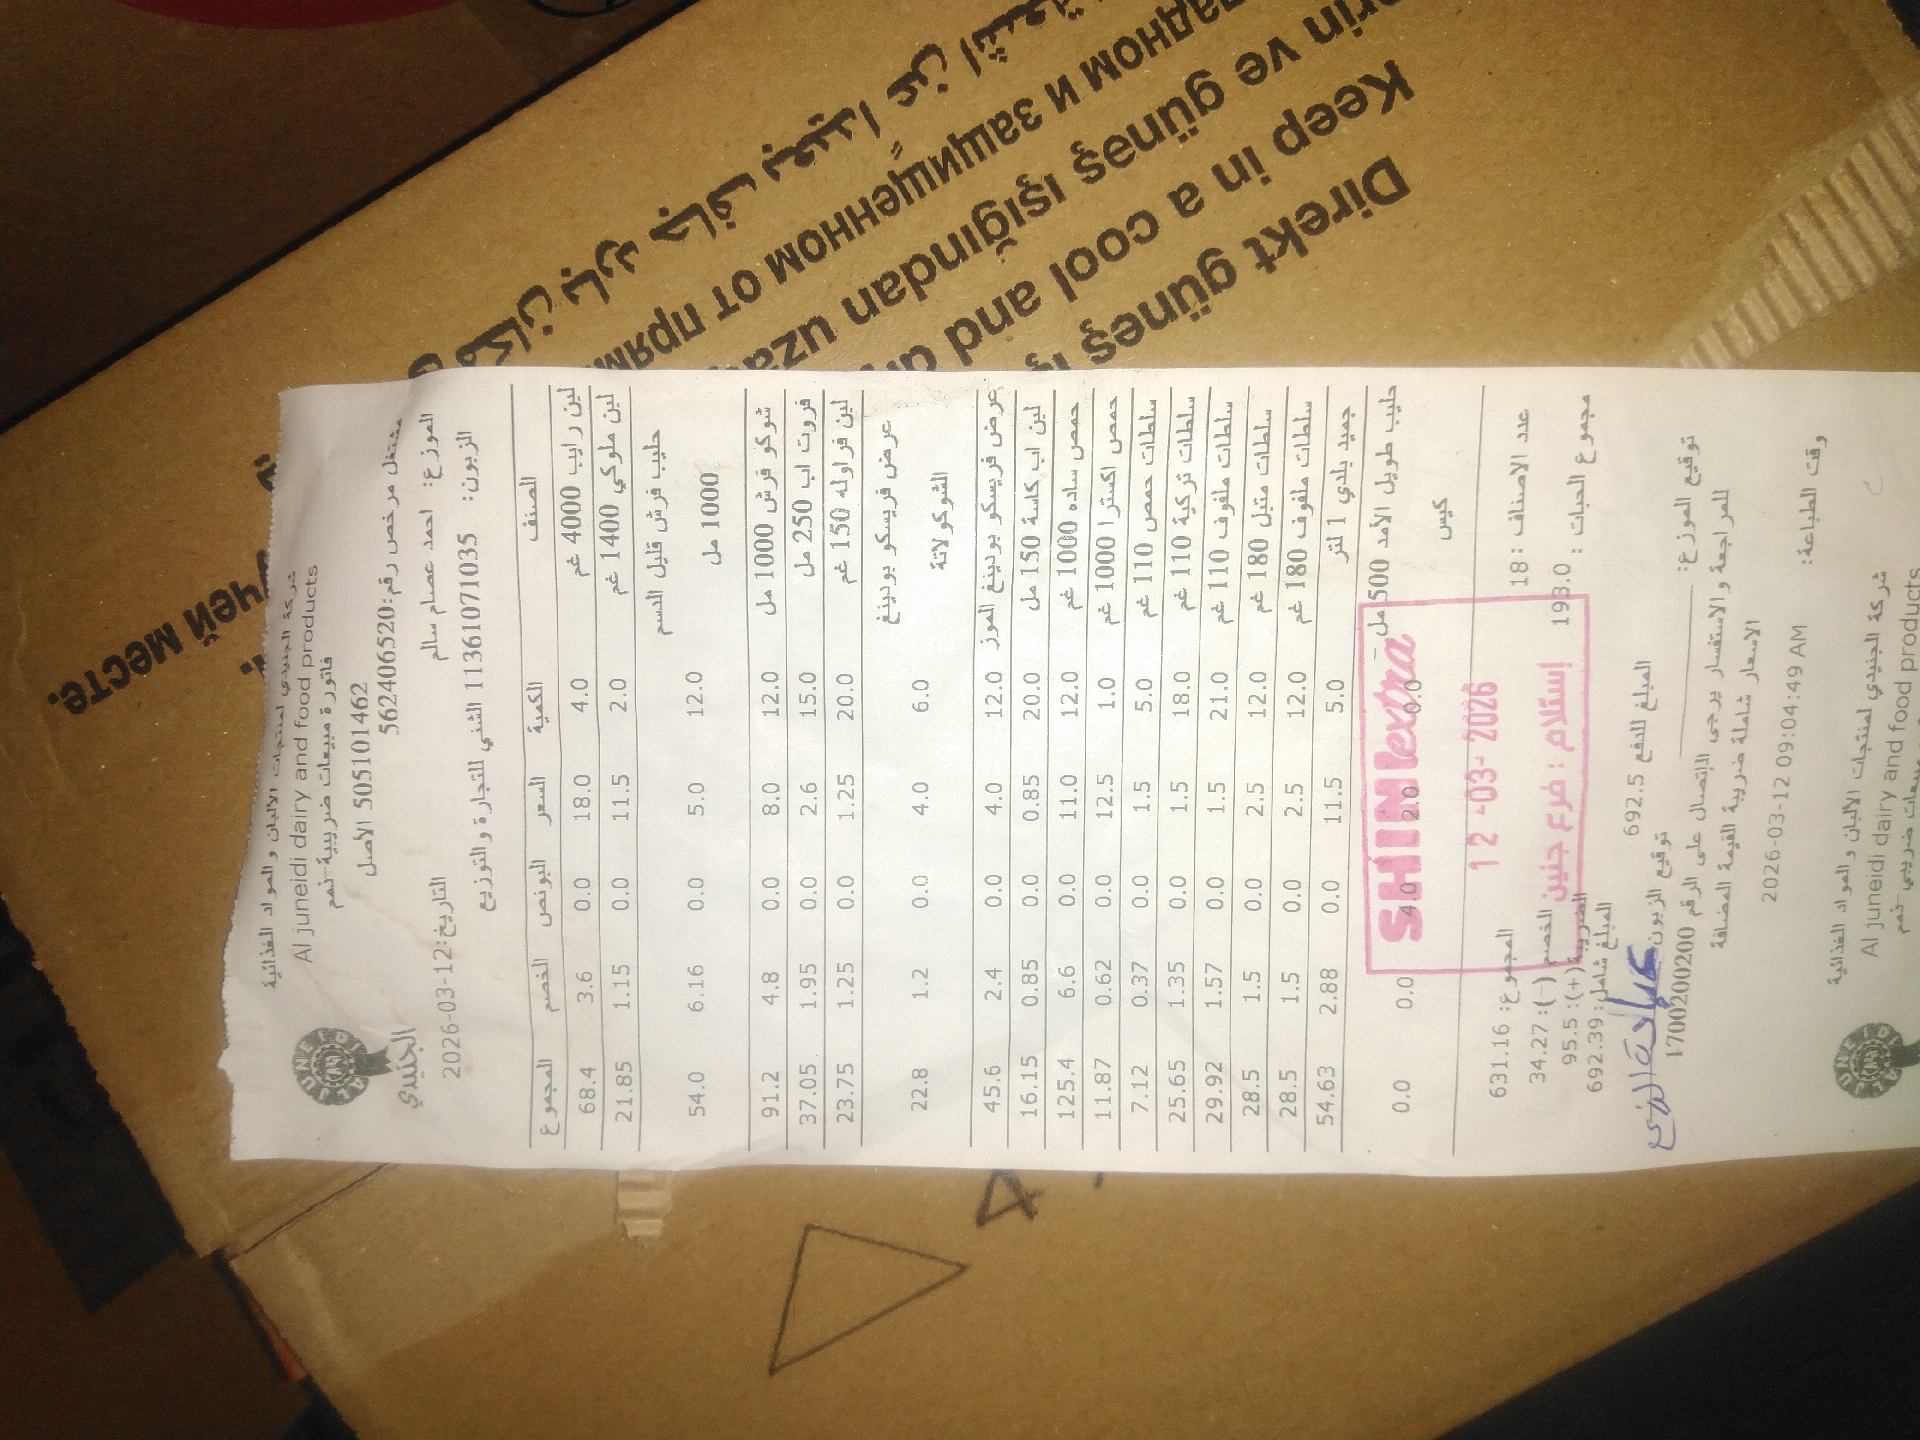 شركة الجنيدي لمنتجات الالبان و المواد الغذائية
Al juneidi dairy and food products
فاتورة مبيعات ضريبية-نمم
505101462 الأصل
مشتغل مرخص رقم:562406520
الجنيدي
الموزع: احمد عصام سالم
التاريخ:2026-03-12
الزبون: 1136107103‎5 الشني للتجارة و التوزيع
الصنف الكمية السعر البونص الخصم المجموع
لبن رايب 4000 غم 4.0 18.0 0.0 3.6 68.4
لبن ملوكي 1400 غم 2.0 11.5 0.0 1.15 21.85
حليب فرش قليل الدسم 1000 مل 12.0 5.0 0.0 6.16 54.0
شوكو فرش 1000 مل 12.0 8.0 0.0 4.8 91.2
فروت اب 250 مل 15.0 2.6 0.0 1.95 37.05
لبن فراوله 150 غم 20.0 1.25 0.0 1.25 23.75
عرض فريسكو بودينغ الشوكولاتة 6.0 4.0 0.0 1.2 22.8
عرض فريسكو بودينغ الموز 12.0 4.0 0.0 2.4 45.6
لبن اب كاسة 150 مل 20.0 0.85 0.0 0.85 16.15
حمص ساده 1000 غم 12.0 11.0 0.0 6.6 125.4
حمص اكسترا 1000 غم 1.0 12.5 0.0 0.62 11.87
سلطات حمص 110 غم 5.0 1.5 0.0 0.37 7.12
سلطات تركية 110 غم 18.0 1.5 0.0 1.35 25.65
سلطات ملفوف 110 غم 21.0 1.5 0.0 1.57 29.92
سلطات متبل 180 غم 12.0 2.5 0.0 1.5 28.5
سلطات ملفوف 180 غم 12.0 2.5 0.0 1.5 28.5
جميد بلدي 1 لتر 5.0 11.5 0.0 2.88 54.63
حليب طويل الأمد 500 مل - كيس 0.0 2.0 4.0 0.0 0.0
SHINI extra
12-03-2026
إستلام : فرع جنين
عدد الاصناف :18
المجموع: 631.16
مجموع الحبات : 193.0
الخصم (-): 34.27
الضريبة(+): 95.5
المبلغ شامل: 692.39
المبلغ للدفع 692.5
توقيع الموزع:
توقيع الزبون
للمراجعة و الاستفسار يرجى الإتصال على الرقم 1700200200
الاسعار شاملة ضريبة القيمة المضافة
وقت الطباعة: 2026-03-12 09:04:49 AM
شركة الجنيدي لمنتجات الالبان و المواد الغذائية
Al juneidi dairy and food products
بارد جاف بعيداً عن
ладном и защищенном от прям
чей месте.
Keep in a cool and d
rin ve güneş ışığından uza
Direkt güneş ış